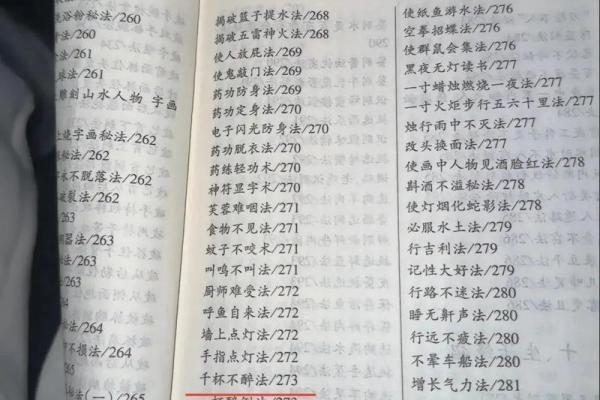 浴粉秘法/260
/260
/261
法/261
雕刻山水人物 字画
烧字画秘法/262
秘法/262
水不脱落法/262
破裂法/262
/263
器法/263
/263
法/264
不损法/264
法(一)/265
揭破篮子提水法/268
揭破五雷神火法/268
使人放屁法/269
使鬼敲门法/269
药功防身法/269
药功定身法/270
电子闪光防身法/270
药功脱衣法/270
药练轻功术/270
神符显字术/270
芙蓉难咽法/271
食物不见法/271
蚊子不咬术/271
叫鸣不叫法/271
厨师难受法/272
呼鱼自来法/272
墙上点灯法/272
手指点灯法/272
千杯不醉法/273
使纸鱼游水法/276
空拳招蝶法/276
使群鼠会集法/276
黑夜无灯读书/277
一寸蜡烛燃烧一夜法/277
一寸火炬步行五六十里法/277
烛行雨中不灭法/277
改头换面法/277
使画中人物见酒脸红法/278
斟酒不溢秘法/278
使灯烟化蛇影法/278
必服水土法/279
行吉利法/279
记性大好法/279
行路不迷法/280
睡无鼾声法/280
行远不疲法/280
不晕车船法/280
增长气力法/281